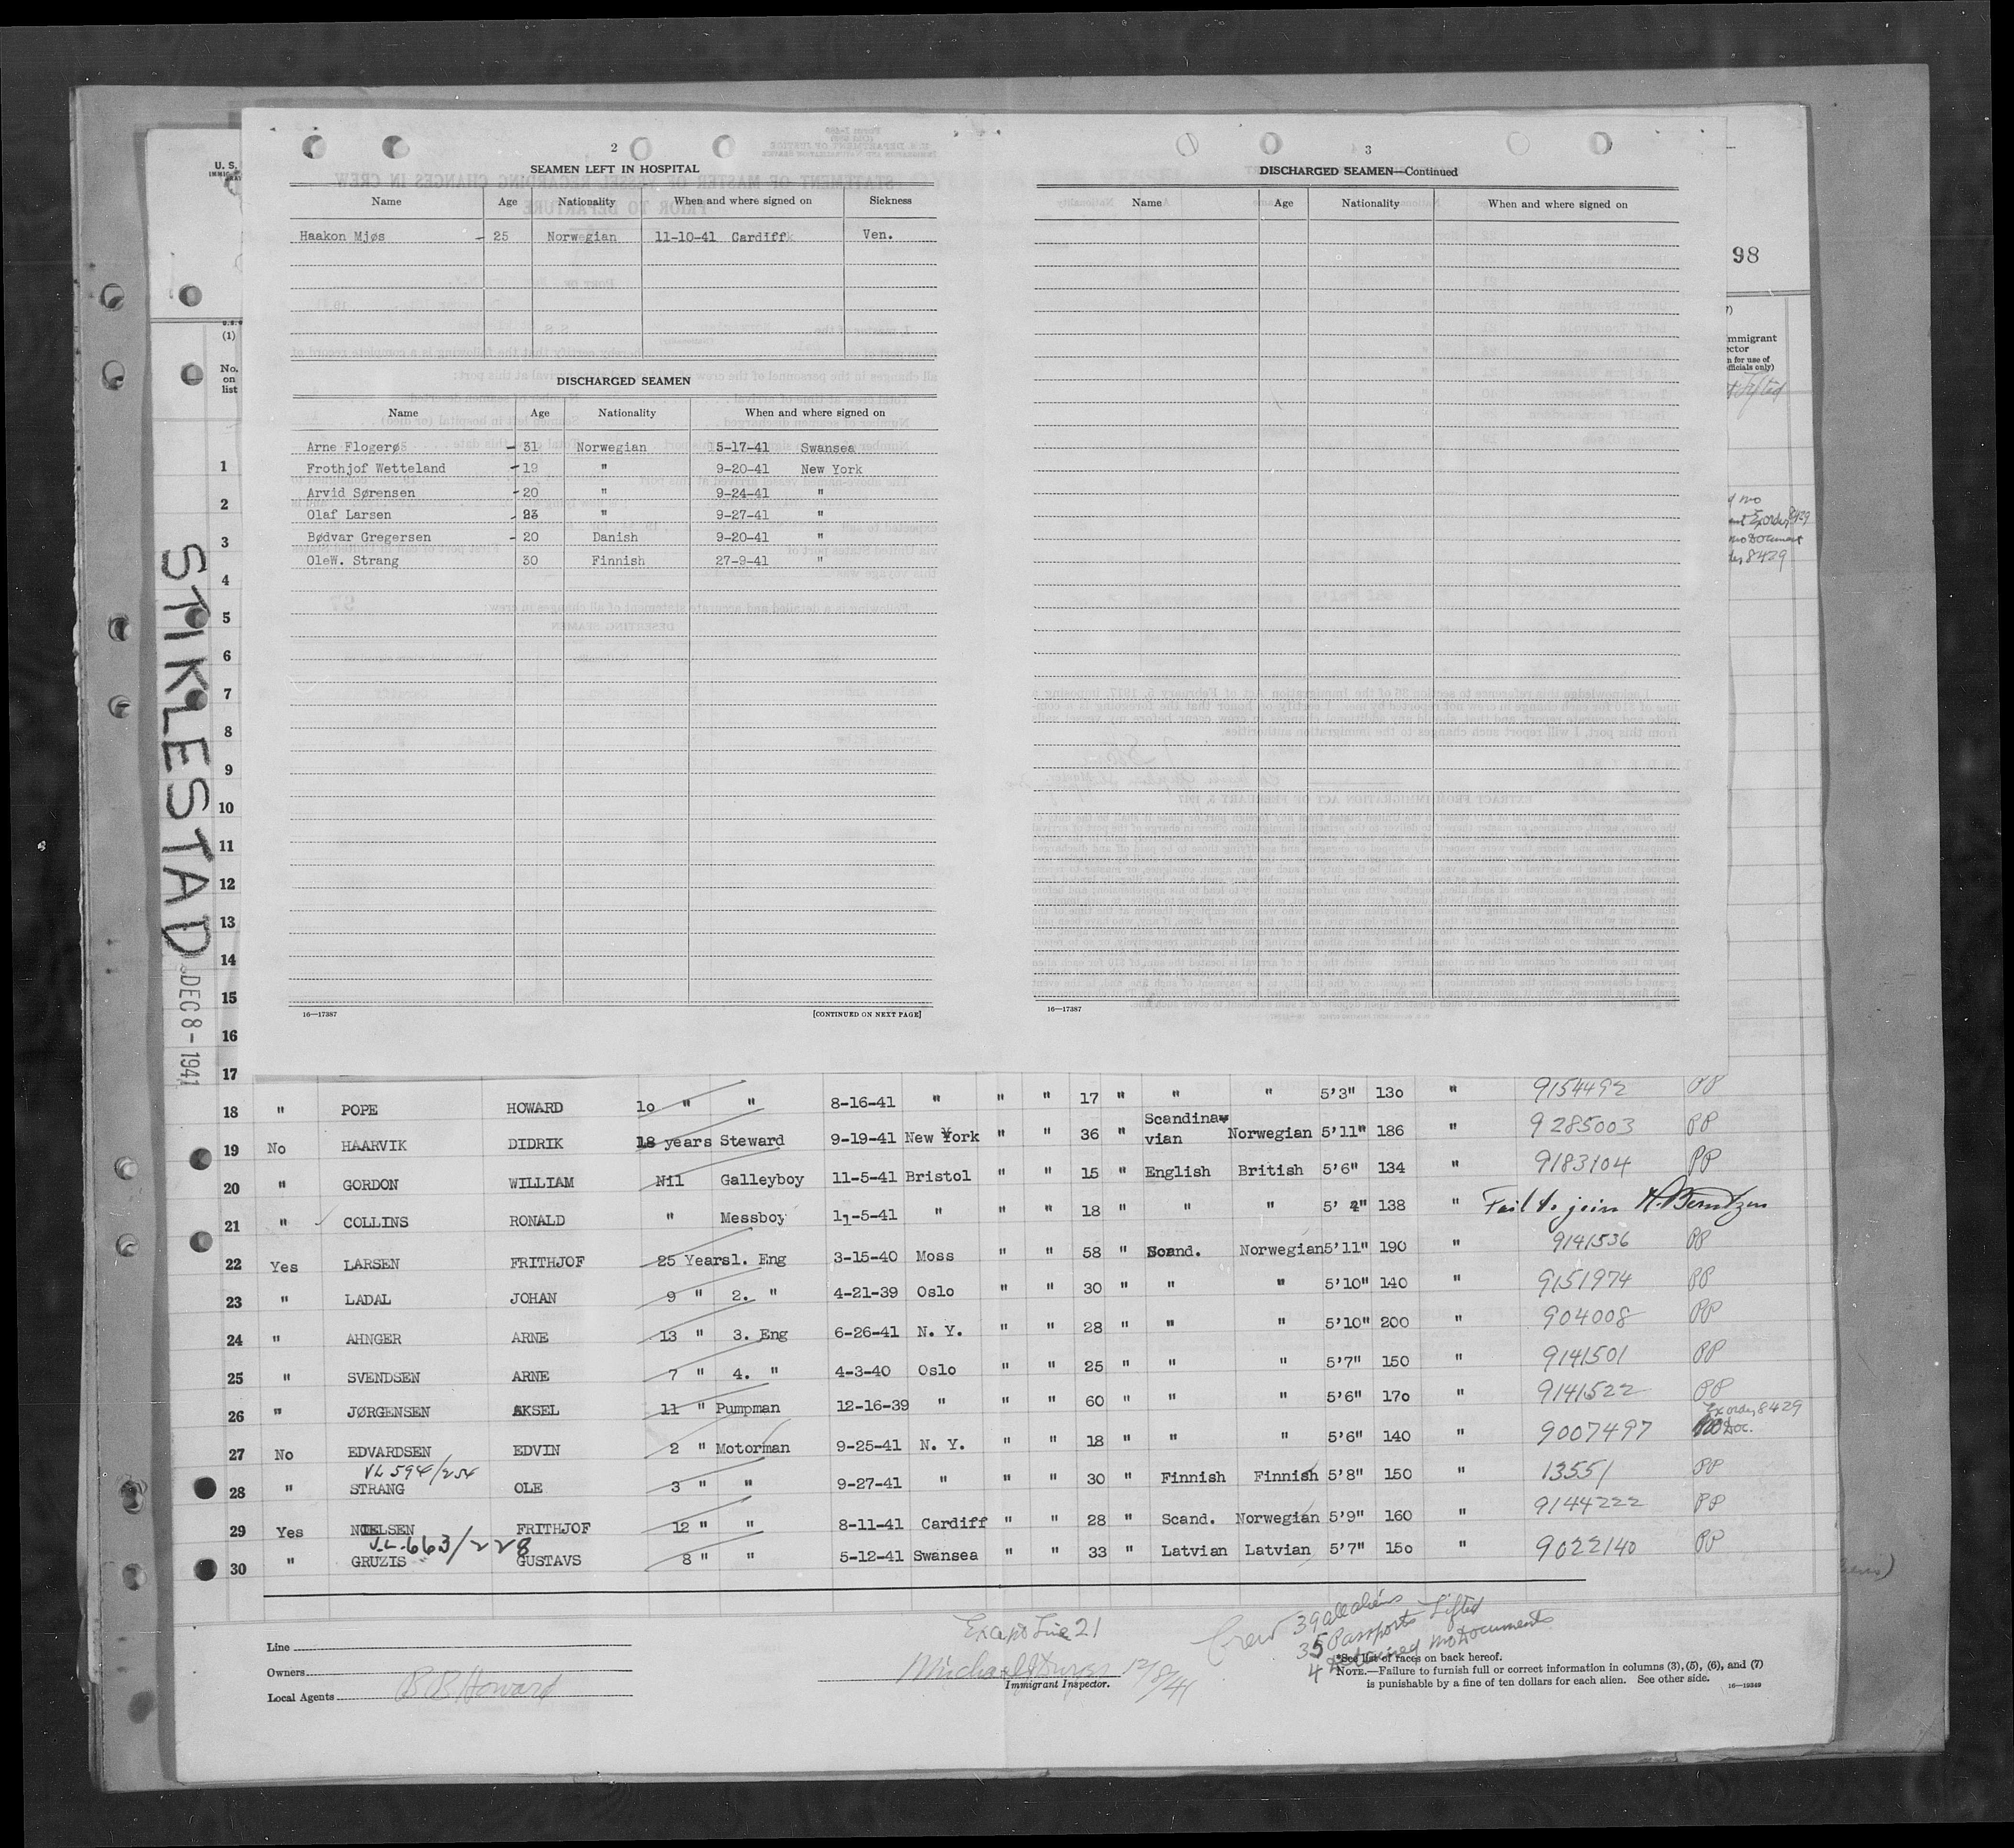 2
SEAMEN LEFT IN HOSPITAL
Name Age Nationality When and where signed on Sickness
Haakon Mjøs - 25 Norwegian 11-10-41 Cardiff Ven.
DISCHARGED SEAMEN
Name Age Nationality When and where signed on
Arne Flogerøs - 31 Norwegian 5-17-41 Swansea
Frothjof Wetteland - 19 " 9-20-41 New York
Arvid Sørensen - 20 " 9-24-41 "
Olaf Larsen - 23 " 9-27-41 "
Bødvar Gregersen - 20 Danish 9-20-41 "
OleW. Strang 30 Finnish 27-9-41 "
16—17387 [CONTINUED ON NEXT PAGE]
3
DISCHARGED SEAMEN—Continued
Name Age Nationality When and where signed on
16—17387
U. S.
(1)
No. on list
98
mmigrant
ector
n for use of
officials only)
Lifted
no
Exorder 8429
no Document
8429
STIKLESTAD
DEC 8 - 1941
1
2
3
4
5
6
7
8
9
10
11
12
13
14
15
16
17
9154492 PP
18 " POPE HOWARD 10 " " 8-16-41 " " " 17 " " " 5'3" 130 "
19 No HAARVIK DIDRIK 18 years Steward 9-19-41 New York " " 36 " Scandinavian Norwegian 5'11" 186 " 9285003 PP
20 " GORDON WILLIAM Nil Galleyboy 11-5-41 Bristol " " 15 " English British 5'6" 134 " 9183104 PP
21 " COLLINS RONALD " Messboy 11-5-41 " " " 18 " " " 5' 4" 138 " Fail to join H. Berntzen
22 Yes LARSEN FRITHJOF 25 Years 1. Eng 3-15-40 Moss " " 58 " Scand. Norwegian 5'11" 190 " 9141536 PP
23 " LADAL JOHAN 9 " 2. " 4-21-39 Oslo " " 30 " " " 5'10" 140 " 9151974 PP
24 " AHNGER ARNE 13 " 3. Eng 6-26-41 N. Y. " " 28 " " " 5'10" 200 " 904008 PP
25 " SVENDSEN ARNE 7 " 4. " 4-3-40 Oslo " " 25 " " " 5'7" 150 " 9141501 PP
26 " JØRGENSEN AKSEL 11 " Pumpman 12-16-39 " " " 60 " " " 5'6" 170 " 9141522 PP
Exorder 8429
27 No EDVARDSEN EDVIN 2 " Motorman 9-25-41 N. Y. " " 18 " " " 5'6" 140 " 9007497 no Doc.
VL 594/254
28 " STRANG OLE 3 " " 9-27-41 " " " 30 " Finnish Finnish 5'8" 150 " 13551 PP
29 Yes NIELSEN FRITHJOF 12 " " 8-11-41 Cardiff " " 28 " Scand. Norwegian 5'9" 160 " 9144222 PP
V.L.663/228
30 " GRUZIS GUSTAVS 8 " " 5-12-41 Swansea " " 33 " Latvian Latvian 5'7" 150 " 9022140 PP
Except Line 21
Crew 39 all aliens
35 Passports Lifted
4 Detained no Documents
Line
Owners
Local Agents B B Howard
12/8/41
Immigrant Inspector.
*See list of races on back hereof.
NOTE.—Failure to furnish full or correct information in columns (3), (5), (6), and (7)
is punishable by a fine of ten dollars for each alien. See other side. 16—19349